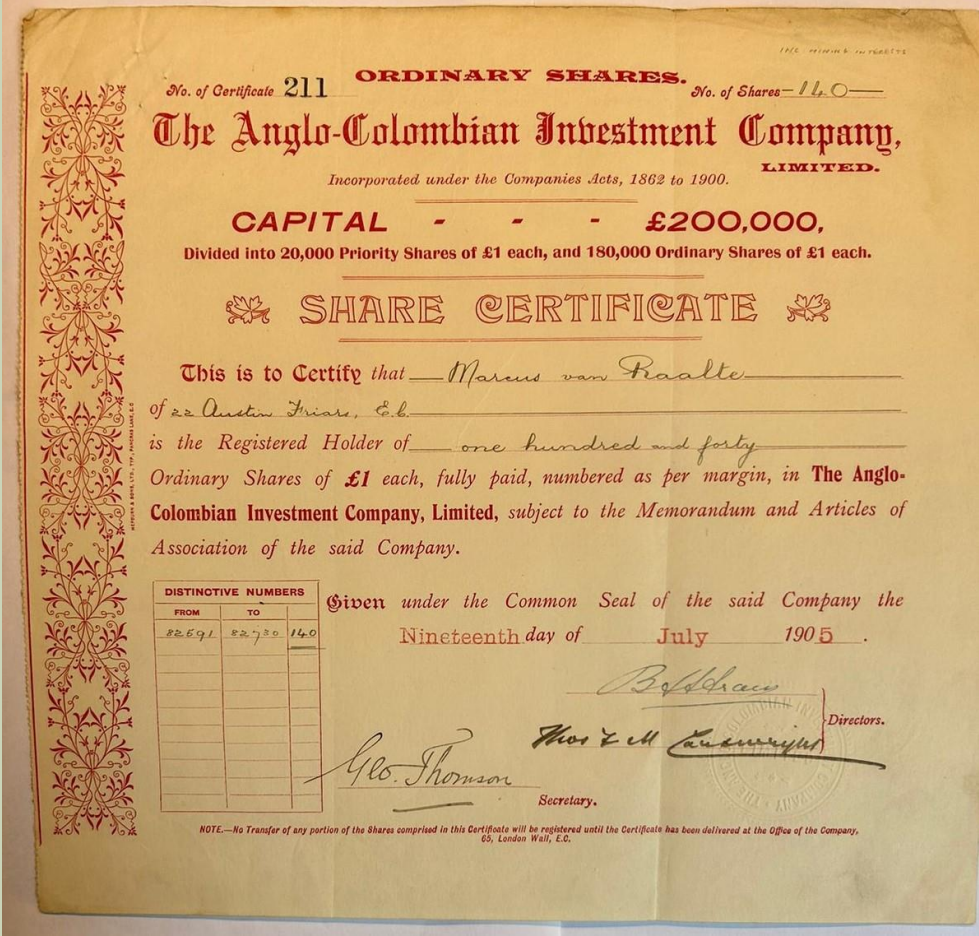 INC. MINING INTERESTS
ORDINARY SHARES.
No. of Certificate 211
No. of Shares - 140 -
The Anglo-Colombian Investment Company,
LIMITED.
Incorporated under the Companies Acts, 1862 to 1900.
CAPITAL - - - £200,000,
Divided into 20,000 Priority Shares of £1 each, and 180,000 Ordinary Shares of £1 each.
SHARE CERTIFICATE
This is to Certify that Marcus van Raalte
of 22 Austin Friars, E.C.
is the Registered Holder of one hundred and forty
Ordinary Shares of £1 each, fully paid, numbered as per margin, in The Anglo-
Colombian Investment Company, Limited, subject to the Memorandum and Articles of
Association of the said Company.
DISTINCTIVE NUMBERS
FROM TO
82591 82730 140
Given under the Common Seal of the said Company the
Nineteenth day of July 1905.
Directors.
Thos F M Cartwright
Geo. Thomson
Secretary.
NOTE.—No Transfer of any portion of the Shares comprised in this Certificate will be registered until the Certificate has been delivered at the Office of the Company,
65, London Wall, E.C.